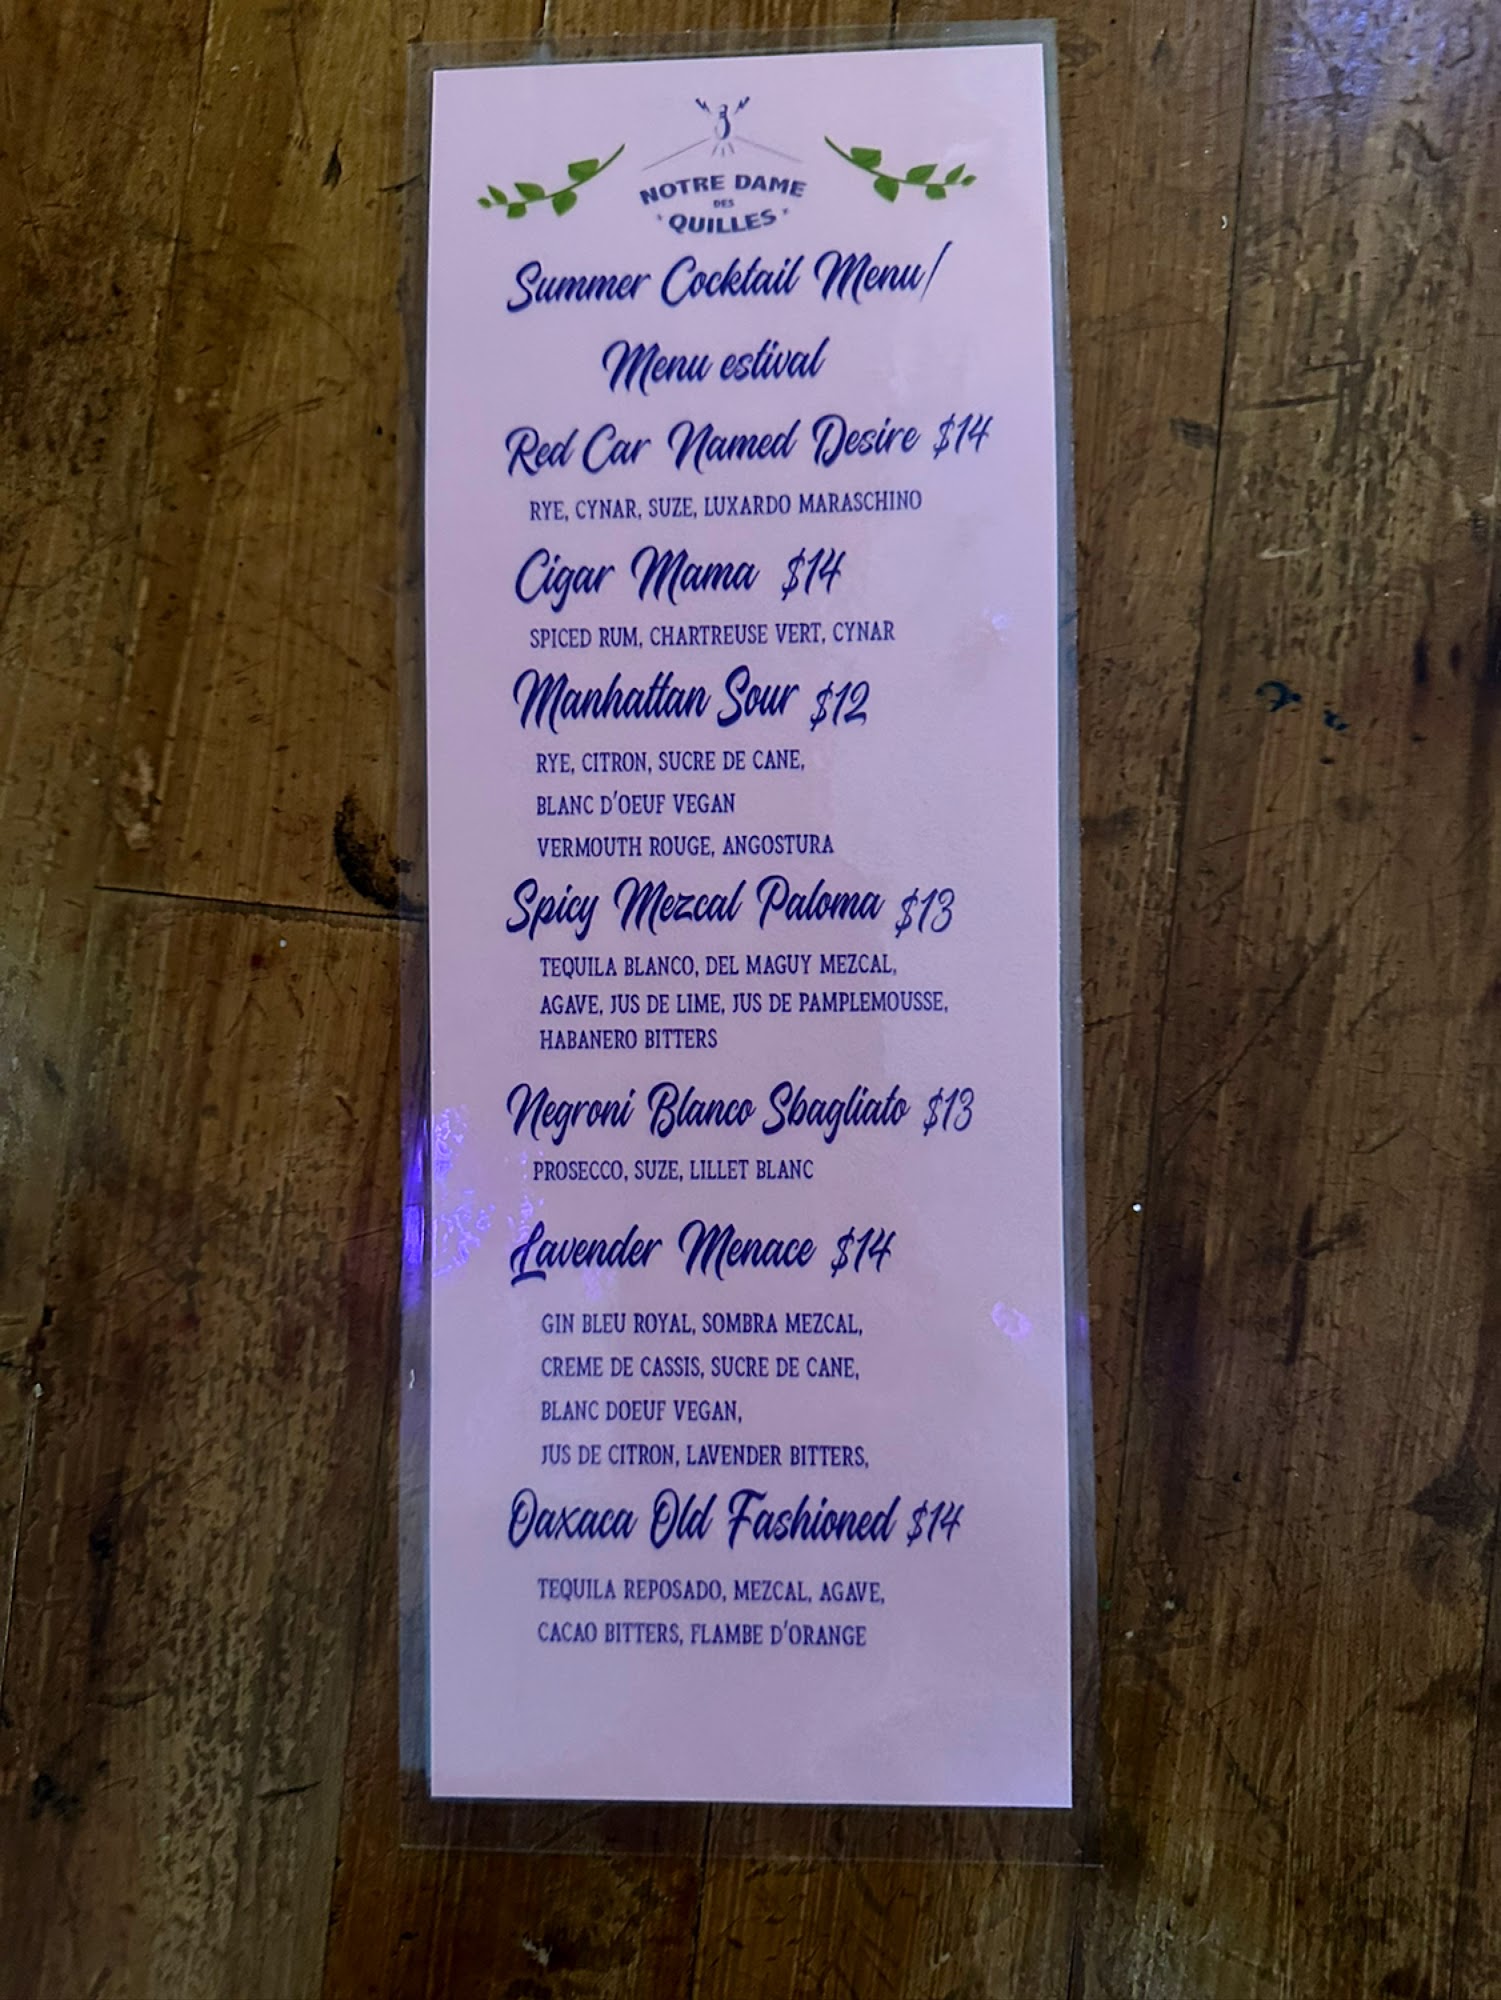 NOTRE DAME
DES
QUILLES
Summer Cocktail Menu/
Menu estival
Red Car Named Desire $14
RYE, CYNAR, SUZE, LUXARDO MARASCHINO
Cigar Mama $14
SPICED RUM, CHARTREUSE VERT, CYNAR
Manhattan Sour $12
RYE, CITRON, SUCRE DE CANE,
BLANC D'OEUF VEGAN
VERMOUTH ROUGE, ANGOSTURA
Spicy Mezcal Paloma $13
TEQUILA BLANCO, DEL MAGUY MEZCAL,
AGAVE, JUS DE LIME, JUS DE PAMPLEMOUSSE,
HABANERO BITTERS
Negroni Blanco Sbagliato $13
PROSECCO, SUZE, LILLET BLANC
Lavender Menace $14
GIN BLEU ROYAL, SOMBRA MEZCAL,
CREME DE CASSIS, SUCRE DE CANE,
BLANC DOEUF VEGAN,
JUS DE CITRON, LAVENDER BITTERS,
Oaxaca Old Fashioned $14
TEQUILA REPOSADO, MEZCAL, AGAVE,
CACAO BITTERS, FLAMBE D'ORANGE